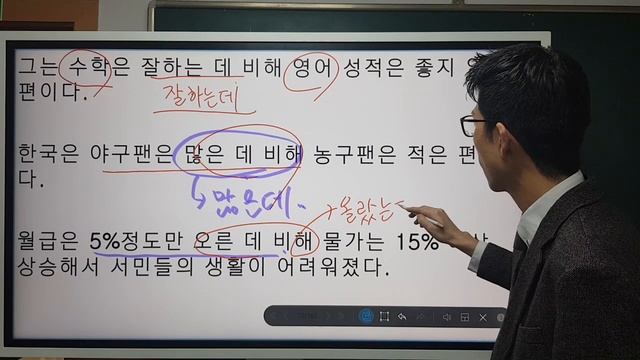 그는 수학은 잘하는 데 비해 영어 성적은 좋지
편이다.
잘하는데
한국은 야구팬은 많은 데 비해 농구팬은 적은 편
다.
많은데
올랐는
월급은 5%정도만 오른 데 비해 물가는 15%
상승해서 서민들의 생활이 어려워졌다.